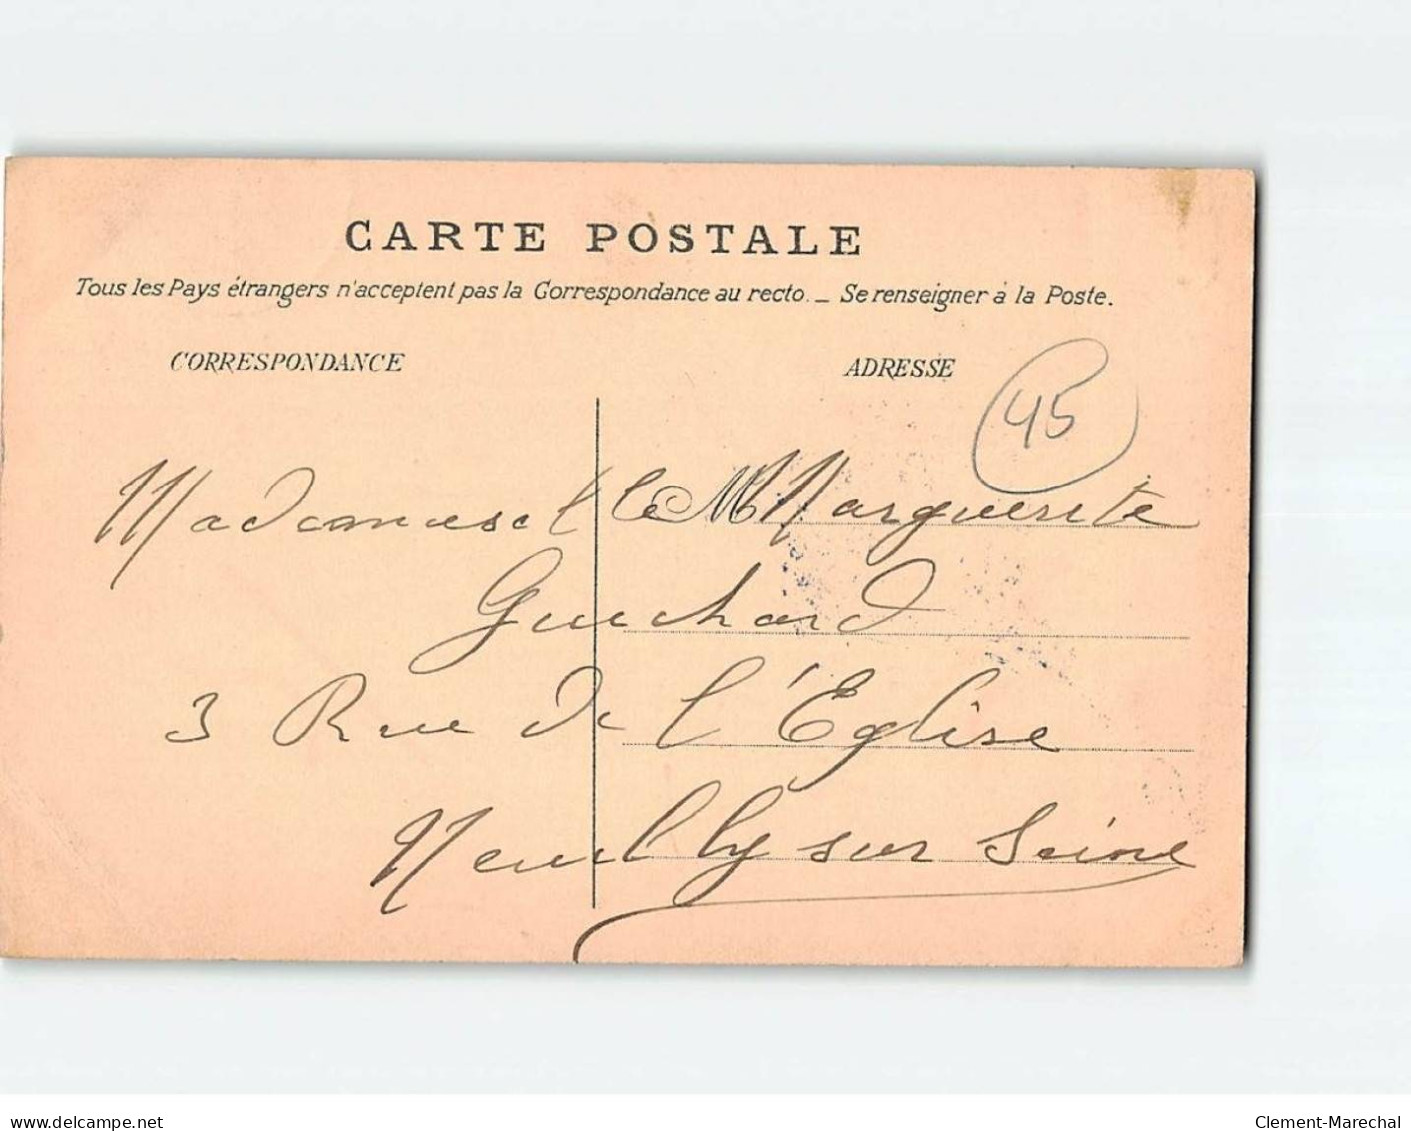 CARTE POSTALE
Tous les Pays étrangers n'acceptent pas la Correspondance au recto. _ Se renseigner à la Poste.
CORRESPONDANCE ADRESSE
45
Mademoiselle M Marguerite
Guichard
3 Rue de l'Eglise
Neuilly sur Seine
www.delcampe.net Clement-Marechal